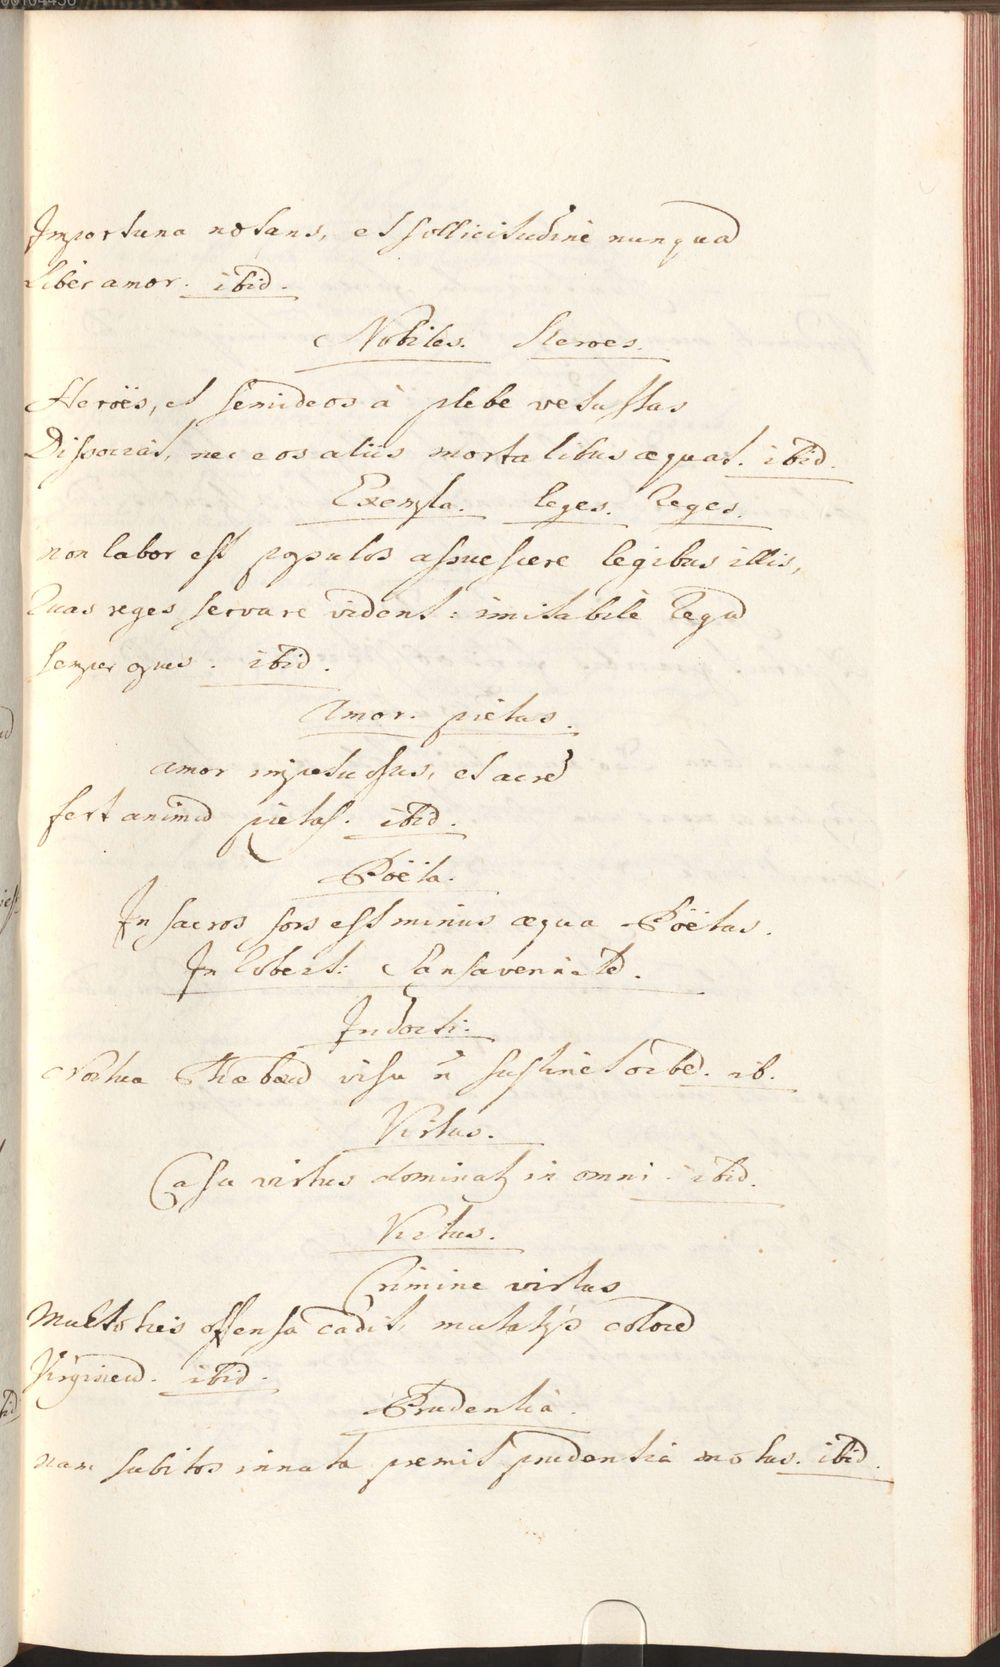 Importuna notans, et sollicitudine nunquã
Liber amor. ibid.
Nobiles. Heroes.
Heroës, et semideos à plebe vetustas
Dissociat, nec eos aliis mortalibus æquat. ibid.
Exempla. leges. Reges.
non labor est populos assuescere legibus illis,
Quas reges servare vident: imitabile Regũ
semper opus. ibid.
Amor. pietas.
amor impetuosus, et acrẽ
fert animũ pietas. ibid.
Poëta.
In sacros sors est minus æqua Poëtas.
In Robert:
Indocti:
Noctua Phœbæũ visu ñ sustinet orbẽ. ib.
Virtus.
Casu virtus dominat' in omni. ibid.
Virtus.
Crimine virtus
Multoties offensa cadit, colorẽ
Virgineũ. ibid.
Prudentia.
nam subitos innata premit prudentia motus. ibid.